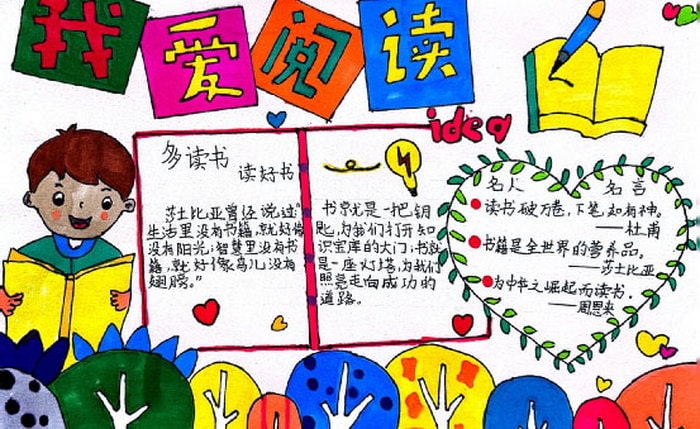 我爱阅读
idea
多读书
读好书
莎士比亚曾经说过"
生活里没有书籍,就好像
没有阳光;智慧里没有书
籍,就好像鸟儿没有
翅膀。"
书就是一把钥
匙,为我们打开知
识宝库的大门;书就
是一座灯塔,为我们
照亮走向成功的
道路。
名人 名言
读书破万卷,下笔如有神。
——杜甫
书籍是全世界的营养品。
——莎士比亚
为中华之崛起而读书.
——周恩来